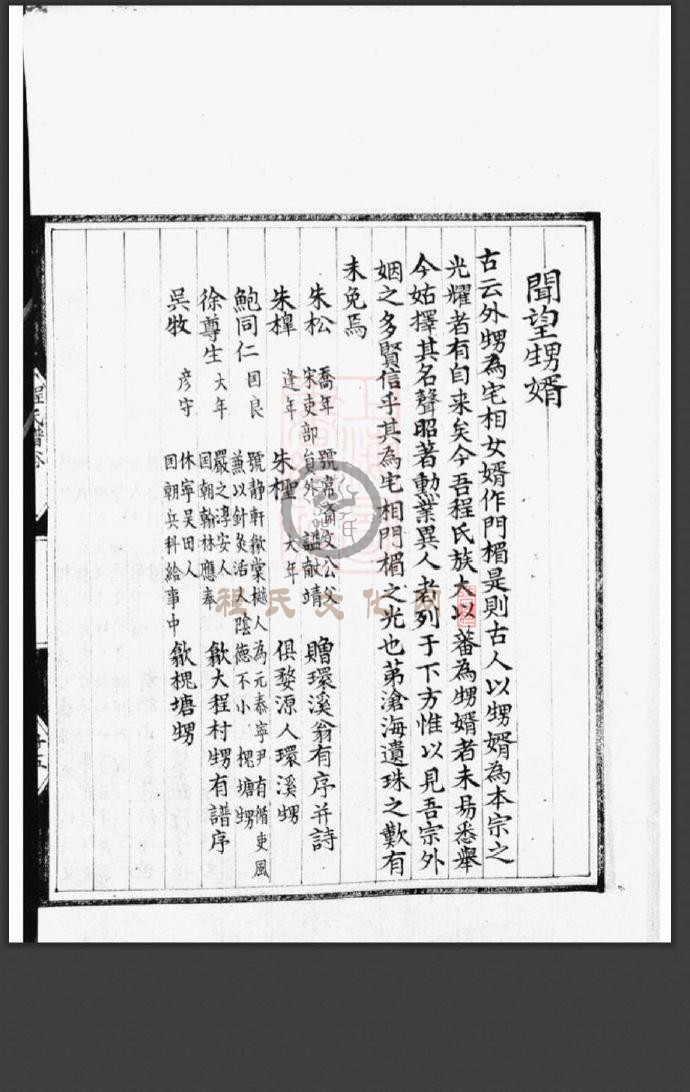 聞望甥婿
古云外甥為宅相女婿作門楣是則古人以甥婿為本宗之
光耀者有自来矣今吾程氏族大以蕃為甥婿者未易悉舉
今姑擇其名聲昭著勳業異人者列于下方惟以見吾宗外
姻之多賢信乎其為宅相門楣之光也苐滄海遺珠之歎有
未免焉
朱松 喬年 宋吏部員外 號韋齋文公父 謚献靖 贈環溪翁有序并詩
逢年 朱檉 大年 俱婺源人環溪甥
鮑同仁 国良 號靜軒歙棠樾人為元泰寧尹有循吏風
兼以針灸活人陰德不小 槐塘甥
徐尊生 大年 嚴之淳安人
国朝翰林應奉 歙大程村甥有譜序
吳牧 彦守 休寧吴田人
国朝兵科給事中 歙槐塘甥
程氏文化网
程氏譜